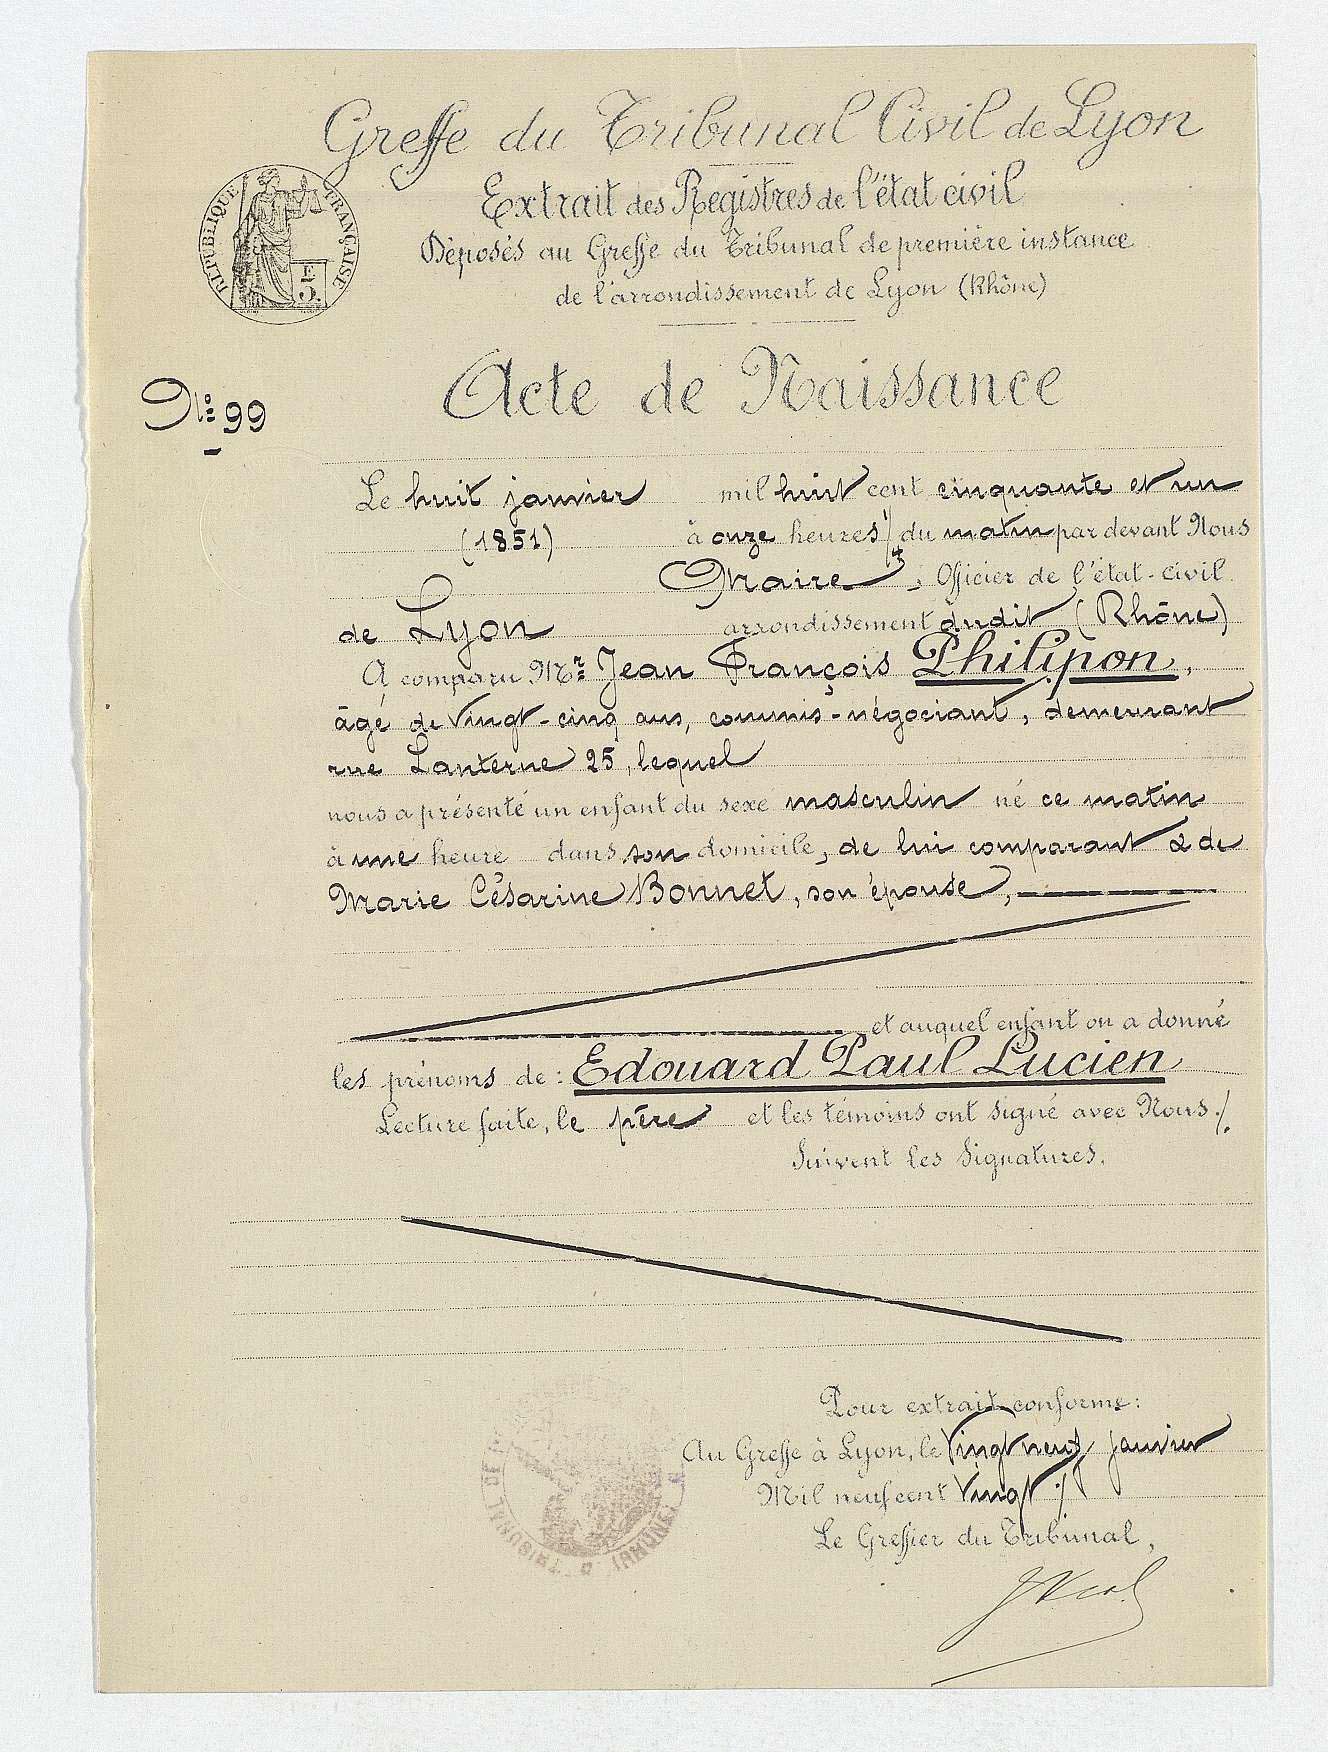 Greffe du Tribunal Civil de Lyon
Extrait des Registres de l'état civil
Déposés au Greffe du Tribunal de première instance
de l'arrondissement de Lyon (Rhône)
RÉPUBLIQUE FRANÇAISE
E
5.
Acte de Naissance
No: 99
Le huit janvier mil huit cent cinquante et un
(1851) à onze heures du matin par devant Nous
Maire, Officier de l'état-civil
de Lyon arrondissement dudit (Rhône)
A comparu Mr: Jean François Philipon,
âgé de vingt-cinq ans, commis-négociant, demeurant
rue Lanterne 25, lequel
nous a présenté un enfant du sexe masculin né ce matin
à une heure dans son domicile, de lui comparant & de
Marie Césarine Bonnet, son épouse,
et auquel enfant on a donné
les prénoms de: Edouard Paul Lucien
Lecture faite, le père et les témoins ont signé avec Nous ./.
Suivent les signatures.
Pour extrait conforme:
Au Greffe à Lyon, le Vingt neuf janvier
Mil neuf cent Vingt ./.
Le Greffier du Tribunal,
TRIBUNAL DE
(RHONE)